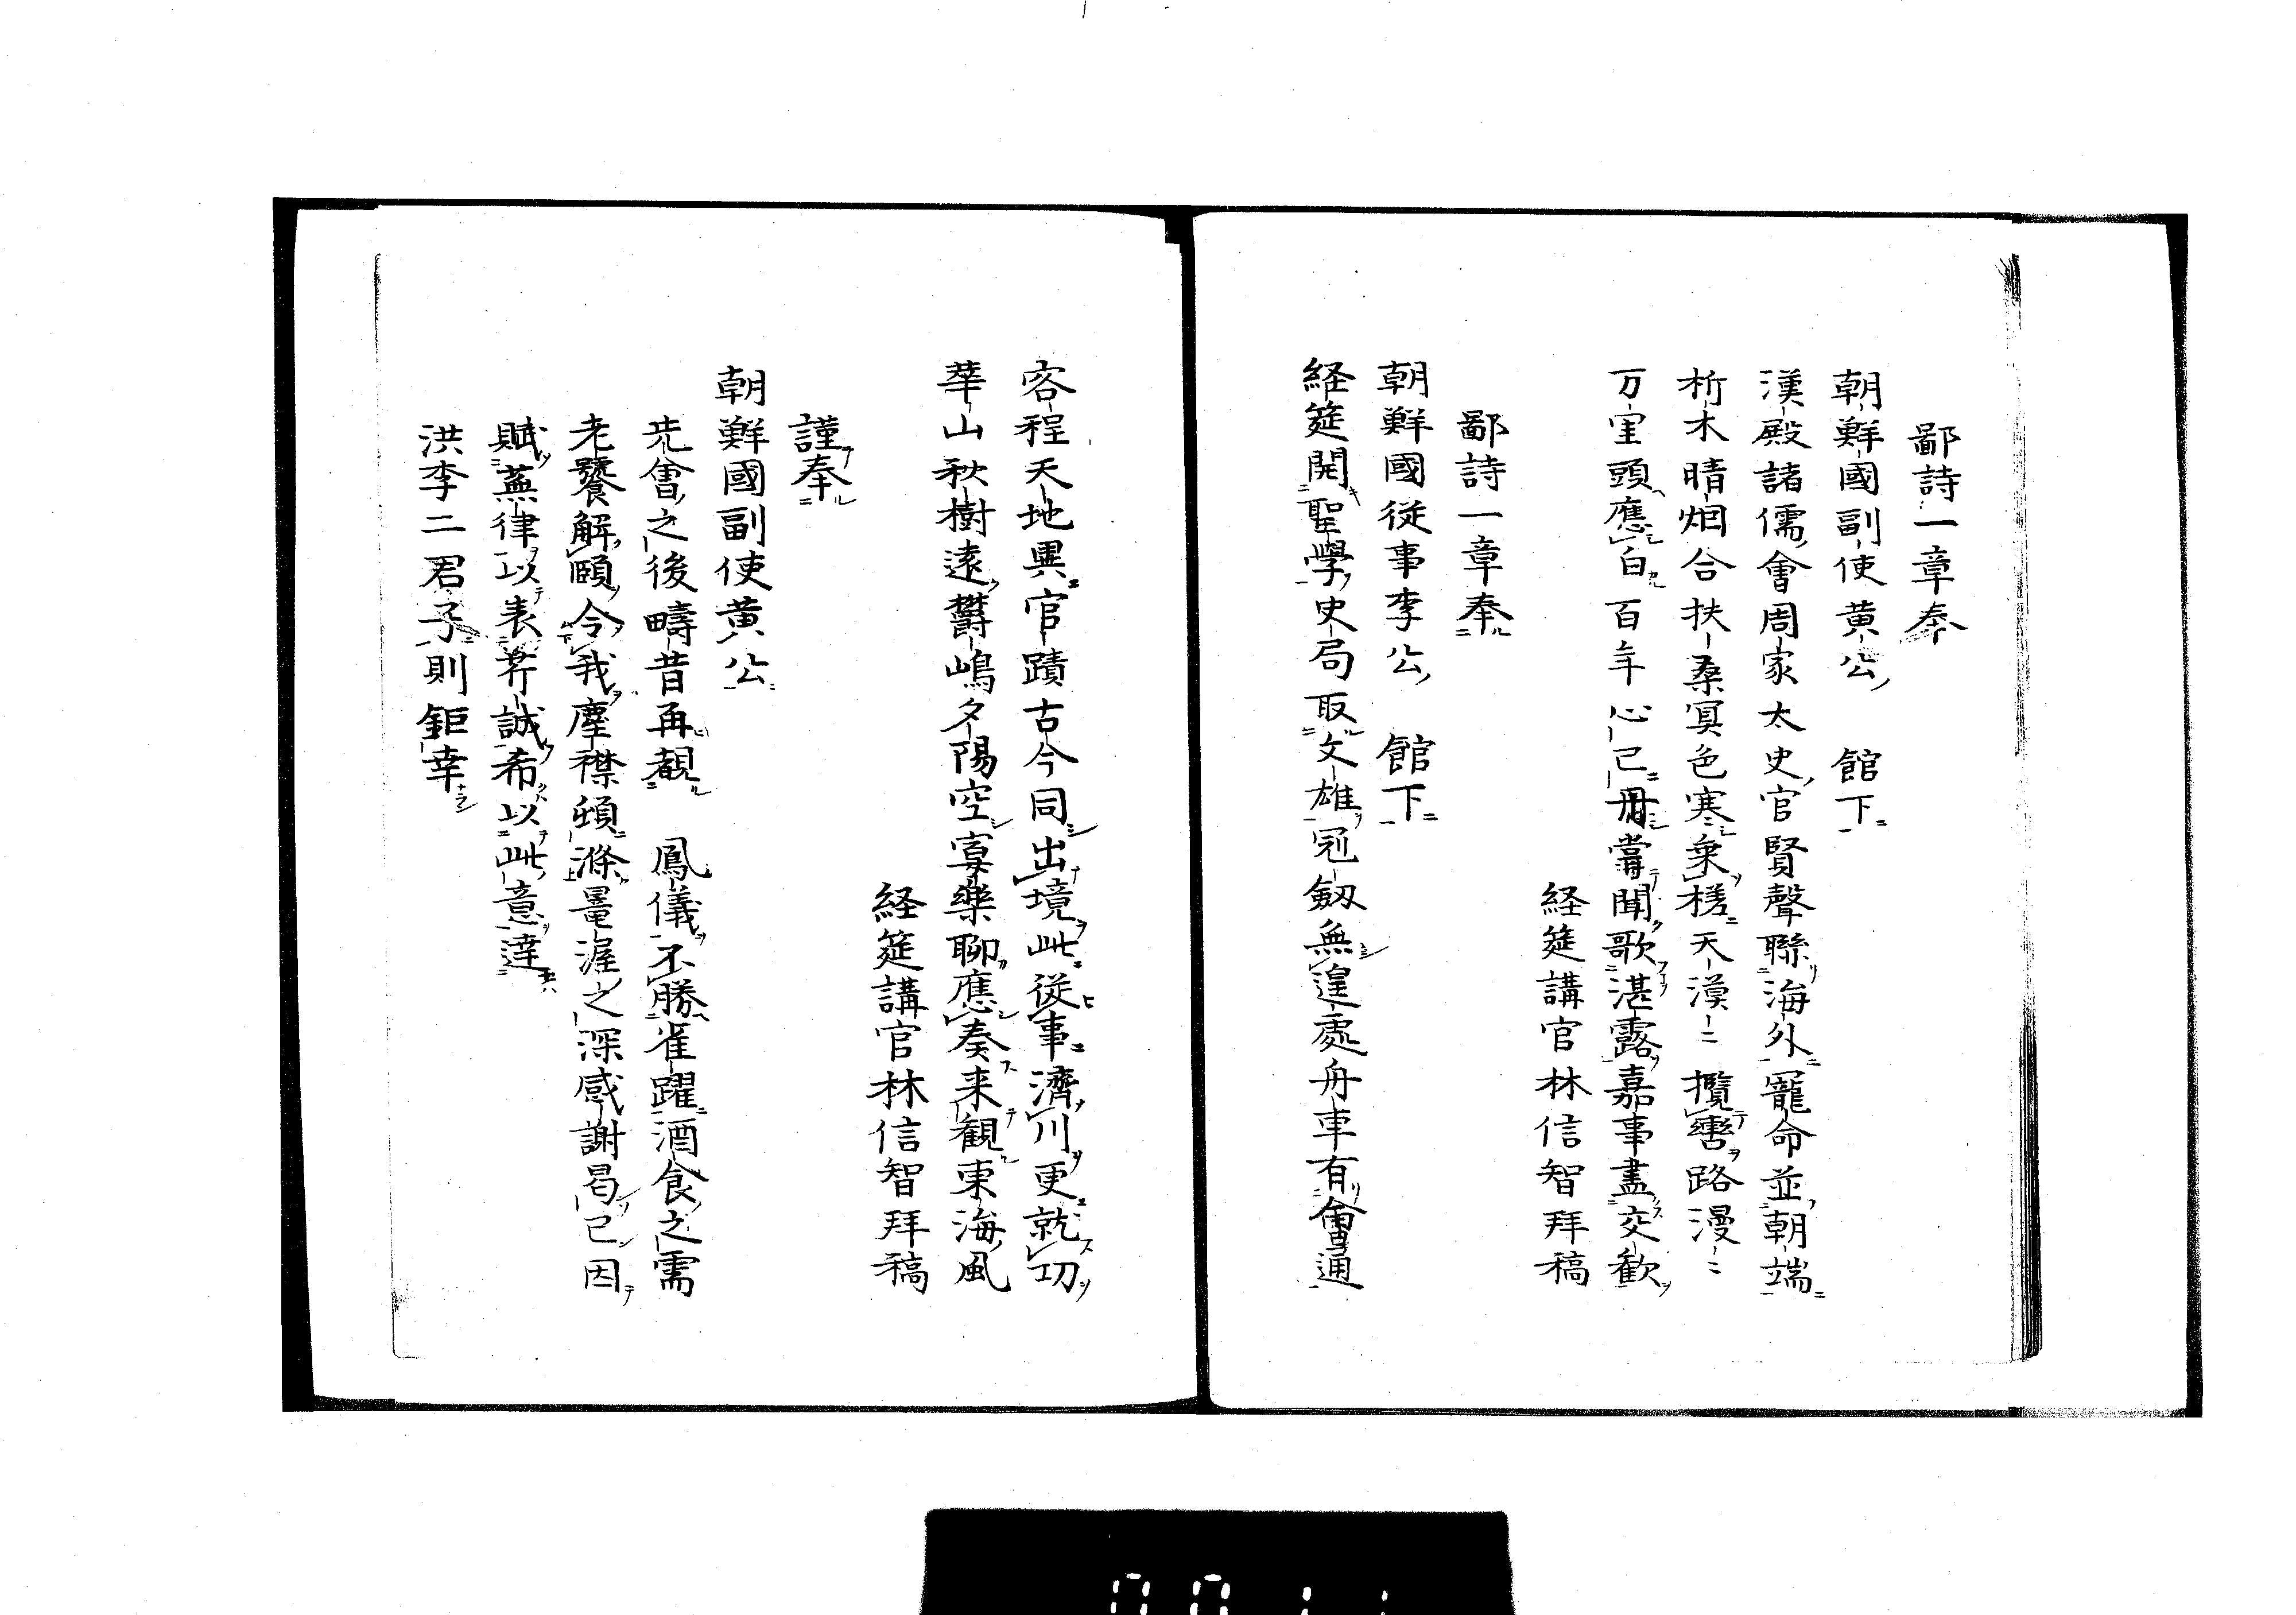 鄙詩一章奉
朝鮮國副使黄公　館下
漢殿諸儒會周家太史官賢聲聯海外寵命並朝端
析木晴烟合扶桑冥色寒乗槎天漠〻攬轡路漫〻
万里頭應白百年心已丹甞聞歌湛露嘉事盡交歓
経筵講官林信智拜稿
鄙詩一章奉
朝鮮國從事李公　館下
経筵開聖學史局取文雄冠劔無遑處舟車有會通
容程天地異官蹟古今同出境此從事濟川更就切
華山秋樹遠欝嶋夕陽空寡樂聊應奏来観東海風
経筵講官林信智拜稿
謹奉
朝鮮國副使黄公
先會之後疇昔再覯　鳳儀不勝雀躍酒食之需
老饕解頤令我塵襟頓滌曼渥之深感謝曷已因
賦蕪律以表芹誠希以此意達
洪李二君子則鉅幸
0011